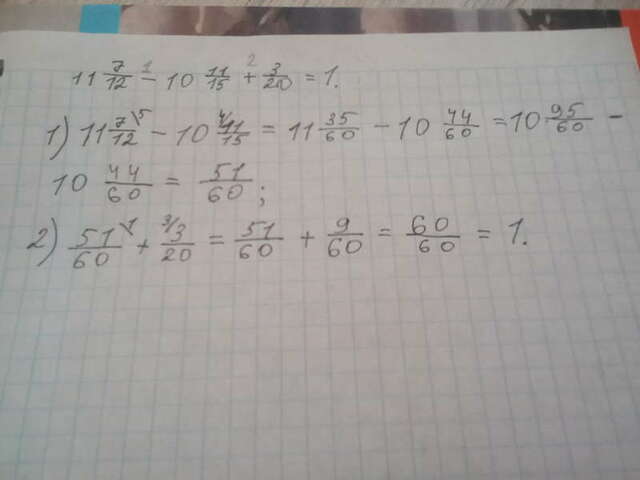 11 7/12 - 10 11/15 + 3/20 = 1.
1 2
1) 11 7/12 \5 - 10 4/ 11/15 = 11 35/60 - 10 44/60 = 10 95/60 -
10 44/60 = 51/60;
2) 51/60 \1 + 3/ 3/20 = 51/60 + 9/60 = 60/60 = 1.